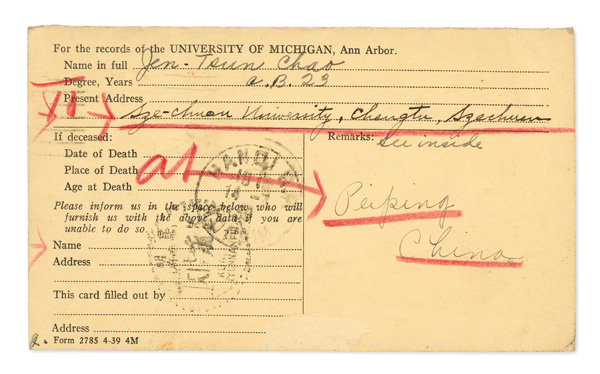 For the records of the UNIVERSITY OF MICHIGAN, Ann Arbor.
Name in full Jen-Tsun Chao
Degree, Years A.B. 23
Present Address
Sze-chuan University, Chengtu, Szechuen
If deceased:
Date of Death
Place of Death
Age at Death
at
Please inform us in the space below who will
furnish us with the above data if you are
unable to do so.
Name
Address
This card filled out by
Address
Form 2785 4-39 4M
Remarks: See inside
Peiping
China